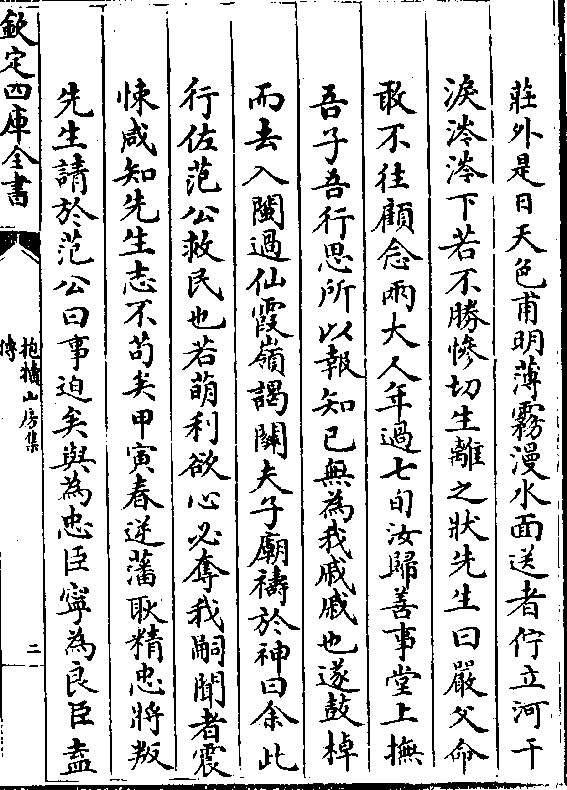 莊外是日天色甫明薄霧漫水面送者佇立河干
淚涔涔下若不勝慘切生離之狀先生曰嚴父命
敢不往顧念兩大人年過七旬汝歸善事堂上撫
吾子吾行思所以報知已無為我戚戚也遂鼓棹
而去入閩過仙霞嶺謁關夫子廟禱於神曰余此
行佐范公救民也若萌利欲心必奪我嗣聞者震
悚咸知先生志不苟矣甲寅春逆藩耿精忠將叛
先生請於范公曰事迫矣與為忠臣寧為良臣盍
欽定四庫全書
抱犢山房集
傳
二